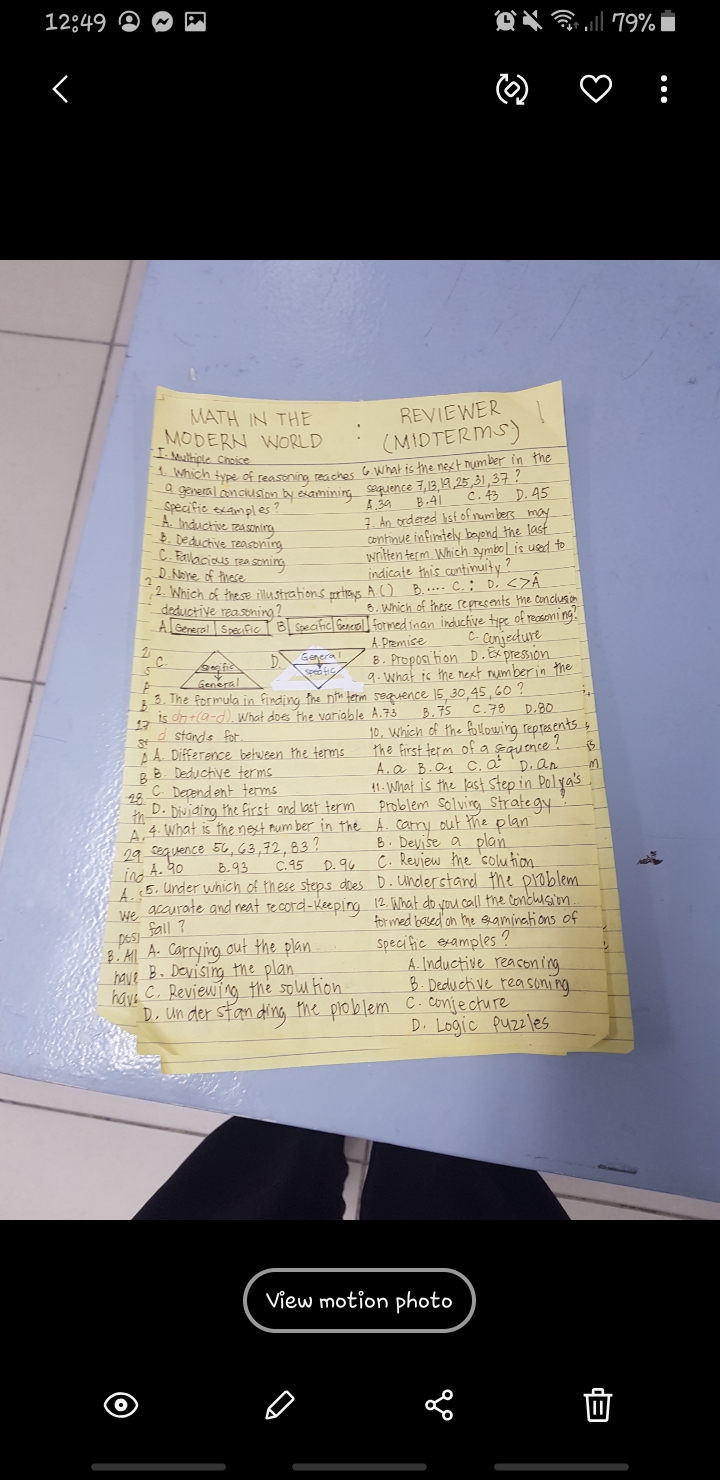 12:49
79%
MATH IN THE
MODERN WORLD
:
REVIEWER !
(MIDTERMS)
I. Multiple Choice
1. Which type of reasoning reaches
a general conclusion by examining
specific examples?
A. Inductive reasoning
B. Deductive reasoning
C. Fallacious reasoning
D. None of these
2. Which of these illustrations portrays
deductive reasoning?
A. General Specific B. Specific General
C. Specific
General
D. General
Specific
3. The formula in finding the nth term
is an+(a-d). What does the variable
d stands for.
A. Difference between the terms
B. Deductive terms
C. Dependent terms
D. Dividing the first and last term
4. What is the next number in the
sequence 56, 63, 72, 83?
A. 90 B. 93 C. 95 D. 96
5. Under which of these steps does
accurate and neat record-keeping
fall?
A. Carrying out the plan
B. Devising the plan
C. Reviewing the solution
D. Understanding the problem
6. What is the next number in the
sequence 7,13,19,25,31,37?
A.39 B.41 C.43 D.45
7. An ordered list of numbers may
continue infinitely beyond the last
written term. Which symbol is used to
indicate this continuity?
A.() B..... C.: D. <>Â
8. Which of these represents the conclusion
formed in an inductive type of reasoning?
A. Premise C. Conjecture
B. Proposition D. Expression
9. What is the next number in the
sequence 15, 30, 45, 60?
A.73 B.75 C.78 D.80
10. Which of the following represents
the first term of a sequence?
A. a B. a1 C. a¹ D. an
11. What is the last step in Polya's
Problem Solving Strategy?
A. Carry out the plan
B. Devise a plan
C. Review the solution
D. Understand the problem
12. What do you call the conclusion
formed based on the examinations of
specific examples?
A. Inductive reasoning
B. Deductive reasoning
C. Conjecture
D. Logic Puzzles
View motion photo